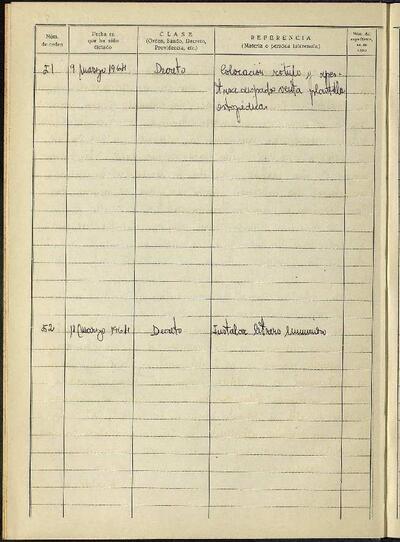 Núm. de orden
Fecha en que ha sido dictado
CLASE
(Orden, Bando, Decreto, Providencia, etc.)
REFERENCIA
(Materia o persona interesada)
Núm. de
51 9 marzo 1964 Decreto Colocación rótulo y
venta plantilla
ortopédicas
52 marzo 1964 Decreto Instalar letrero luminoso